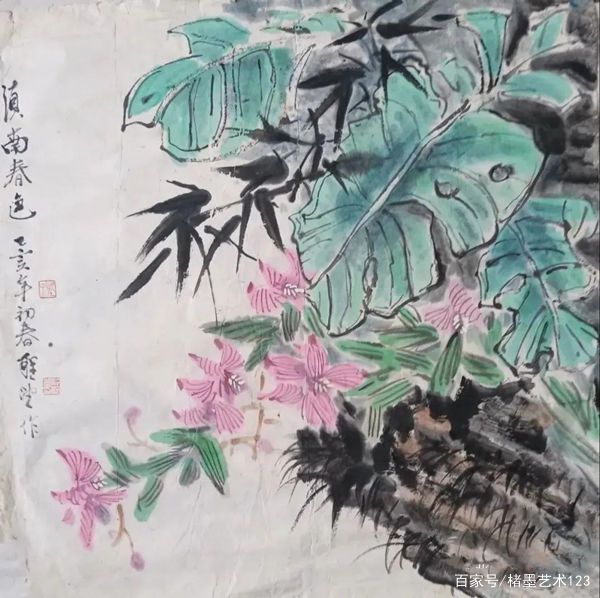 滇南春色
乙亥年初春
作
百家号/楮墨艺术123